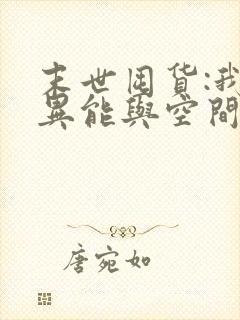 末世囤货:我
異能與空間
唐宛如